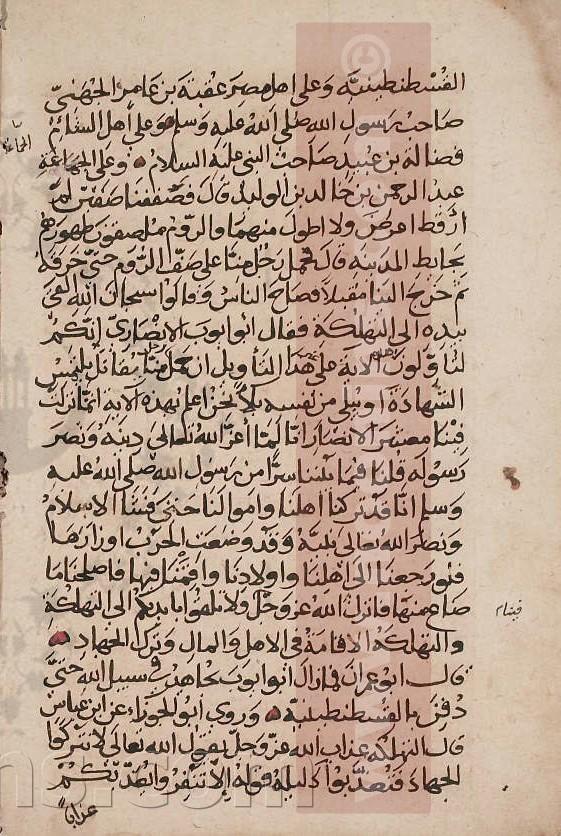 القسطنطينية وعلى اهل مصر عقبة بن عامر الجهني
صاحب رسول الله صلى الله عليه وسلم وعلى أهل الشام
فضالة بن عبيد صاحب النبي عليه السلام وعلى الجماعة
عبد الرحمن بن خالد بن الوليد قال فصففنا صفين لم
ار قط اعرض ولا اطول منهما والروم ملصقون ظهورهم
بحايط المدينة قال فحمل رجل منا على صف الروم حتى خرقه
ثم خرج الينا مقبلا فصاح الناس وقالوا سبحان الله القى
بيده الى التهلكة فقال ابو ايوب الانصاري إنكم
لتاولون هذه الاية على هذا التأويل ان حمل رجل منا يقاتل يلتمس
الشهادة او يبلى من نفسه بلاءً نحن اعلم بهذه الاية انما نزلت
فينا معشر الانصار انا لما أعز الله تعالى دينه ونصر
رسوله قلنا فيما بيننا سرا من رسول الله صلى الله عليه
وسلم انا قد تركنا اهلنا واموالنا حتى فشا الاسلام
ونصر الله تعالى نبيه وقد وضعت الحرب اوزارها
فلو رجعنا الى اهلينا واولادنا واقمنا فيها فاصلحنا ما
ضاع منها فانزل الله عز وجل ولا تلقوا بايديكم الى التهلكة
والتهلكة الاقامة في الاهل والمال وترك الجهاد
قال ابو عمران فما زال ابو ايوب يجاهد في سبيل الله حتى
دفن بالقسطنطينية وروى ابو الجوزاء عن ابن عباس
قال التهلكة عذاب الله عز وجل يقول الله تعالى لا تتركوا
الجهاد فتعذبوا دليله قوله إلا تنفروا يعذبكم
عذاباً